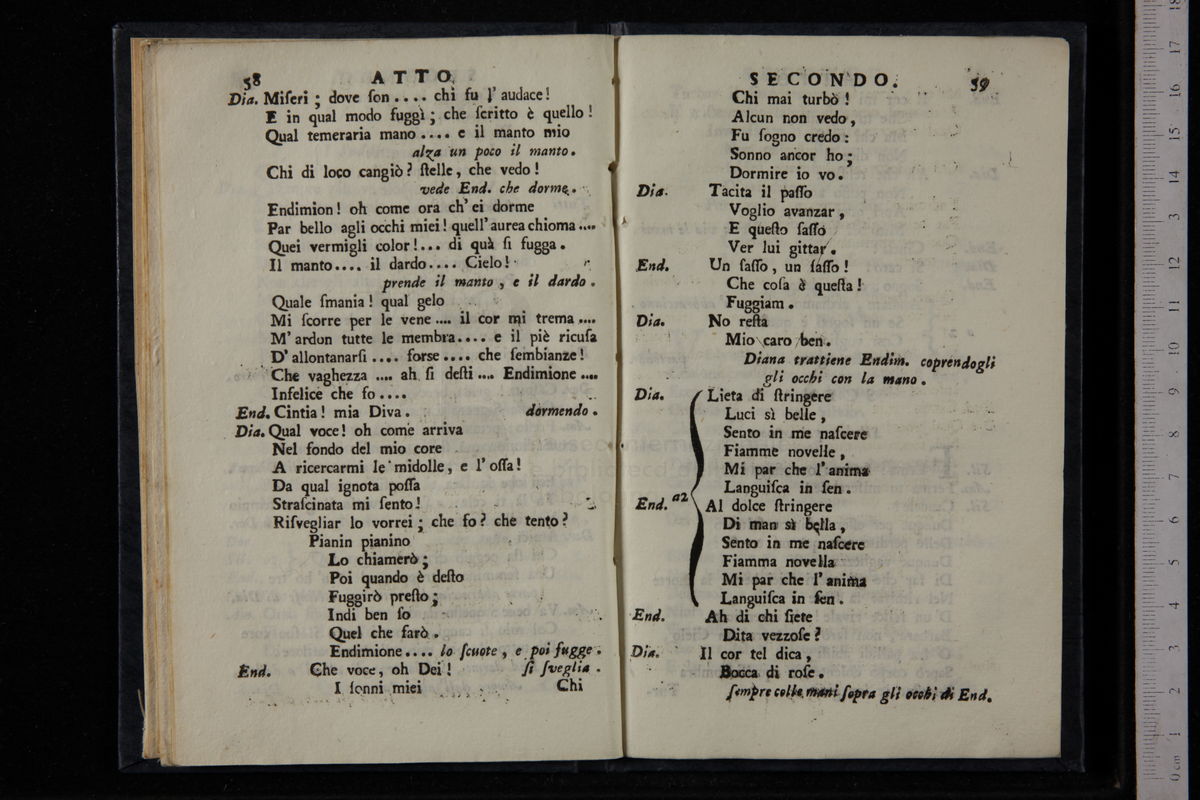 58
ATTO.
Dia. Miſeri ; dove ſon .... chi fu l' audace !
E in qual modo fuggì ; che ſcritto è quello !
Qual temeraria mano .... e il manto mio
alza un poco il manto.
Chi di loco cangiò ? ſtelle, che vedo !
vede End. che dorme.
Endimion ! oh come ora ch' ei dorme
Par bello agli occhi miei ! quell' aurea chioma ....
Quei vermigli color !... di quà ſi fugga.
Il manto.... il dardo.... Cielo !
prende il manto, e il dardo.
Quale ſmania ! qual gelo
Mi ſcorre per le vene .... il cor mi trema ....
M' ardon tutte le membra.... e il piè ricuſa
D' allontanarſi .... forse .... che ſembianze !
Che vaghezza .... ah ſi deſti .... Endimione ....
Infelice che fo ....
End. Cintia ! mia Diva. dormendo.
Dia. Qual voce ! oh come arriva
Nel fondo del mio core
A ricercarmi le midolle, e l' oſſa !
Da qual ignota poſſa
Straſcinata mi ſento !
Riſvegliar lo vorrei ; che fo ? che tento ?
Pianin pianino
Lo chiamerò ;
Poi quando è deſto
Fuggirò preſto ;
Indi ben ſo
Quel che farò.
Endimione .... lo ſcuote, e poi fugge.
End. Che voce, oh Dei ! ſi ſveglia.
I ſonni miei
Chi
SECONDO.
59
Chi mai turbò !
Alcun non vedo,
Fu ſogno credo :
Sonno ancor ho ;
Dormire io vo.
Dia. Tacita il paſſo
Voglio avanzar,
E queſto ſaſſo
Ver lui gittar.
End. Un ſaſſo, un ſaſſo !
Che coſa è queſta !
Fuggiam.
Dia. No reſta
Mio caro ben.
Diana trattiene Endim. coprendogli
gli occhi con la mano.
Dia. Lieta di ſtringere
Luci sì belle,
Sento in me naſcere
Fiamme novelle,
Mi par che l' anima
Languiſca in ſen.
a2
End. Al dolce ſtringere
Di man sì bella,
Sento in me naſcere
Fiamma novella
Mi par che l' anima
Languiſca in ſen.
End. Ah di chi ſiete
Dita vezzoſe ?
Dia. Il cor tel dica,
Bocca di roſe.
ſempre colle mani ſopra gli occhi di End.